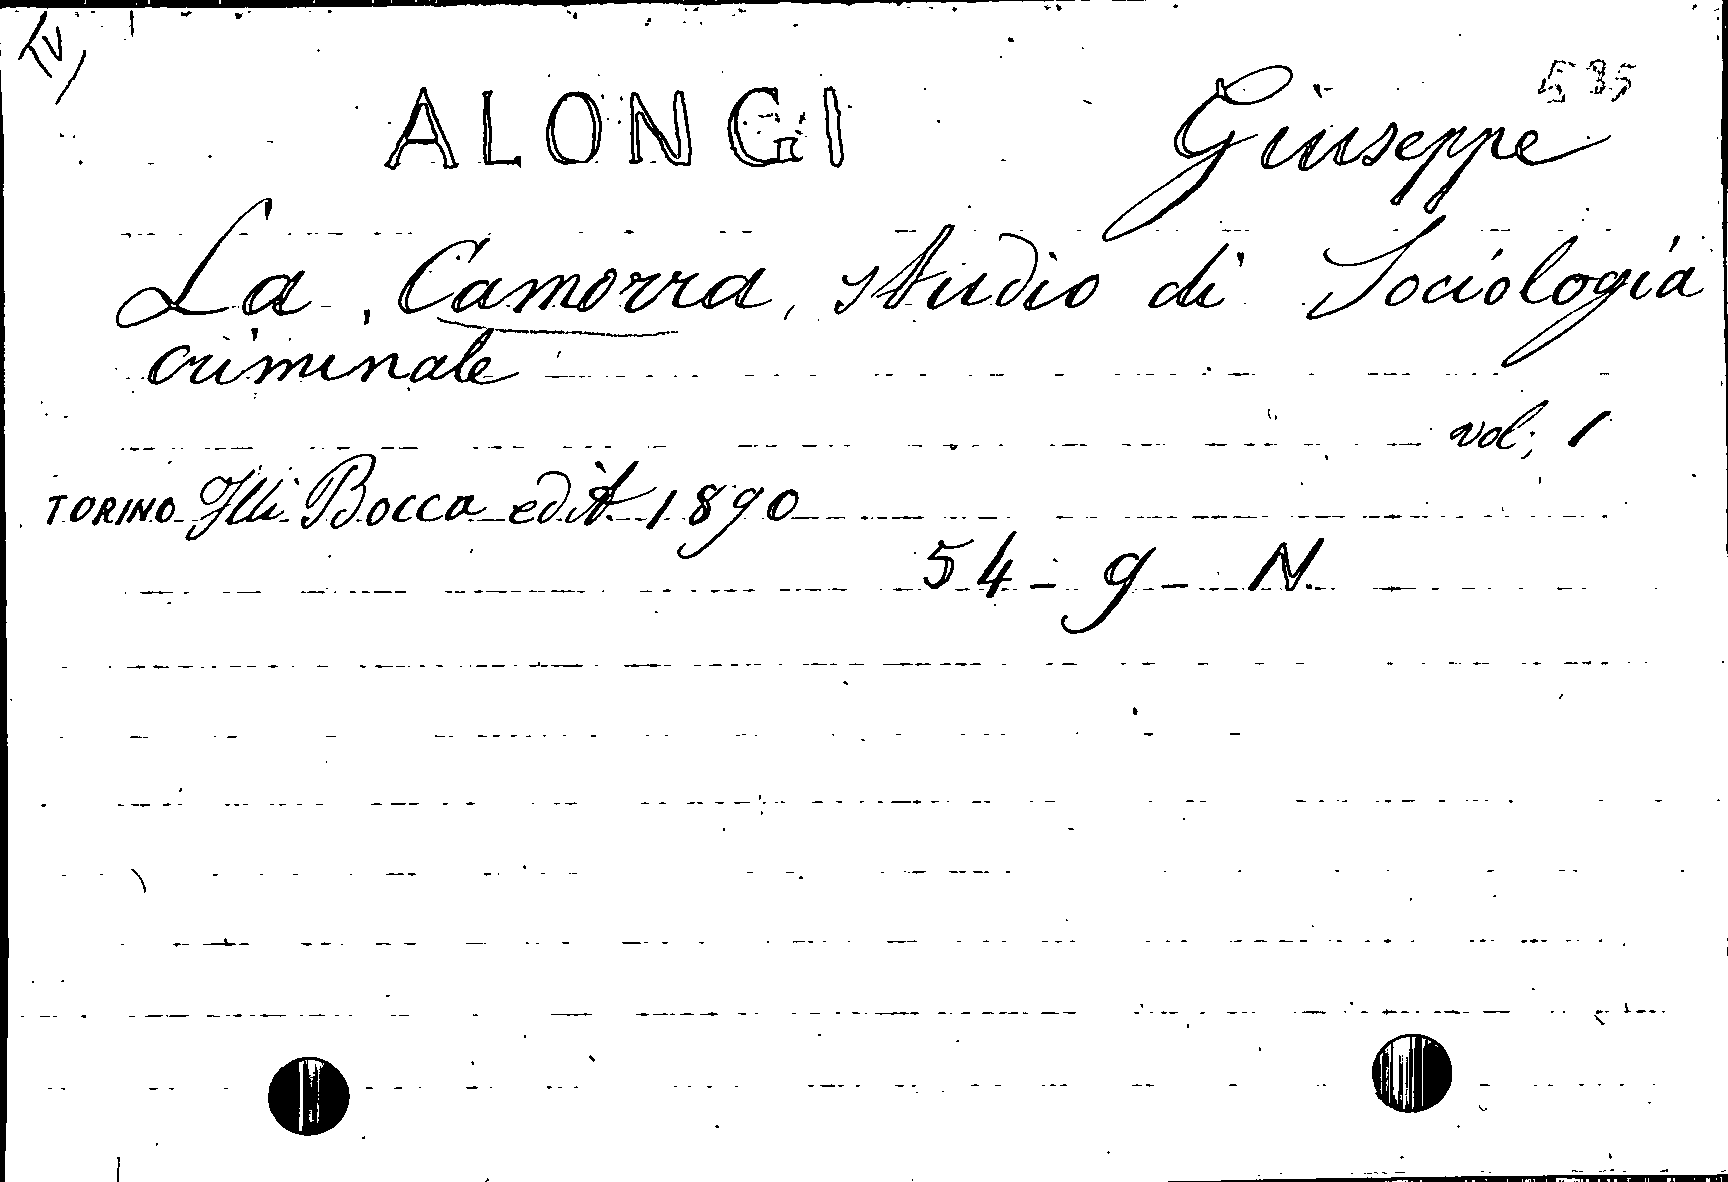 IV)
535
ALONGI Giuseppe
La Camorra, studio di Sociologia
criminale
vol; 1
TORINO Flli Bocca edit 1890
54 - 9 - N.